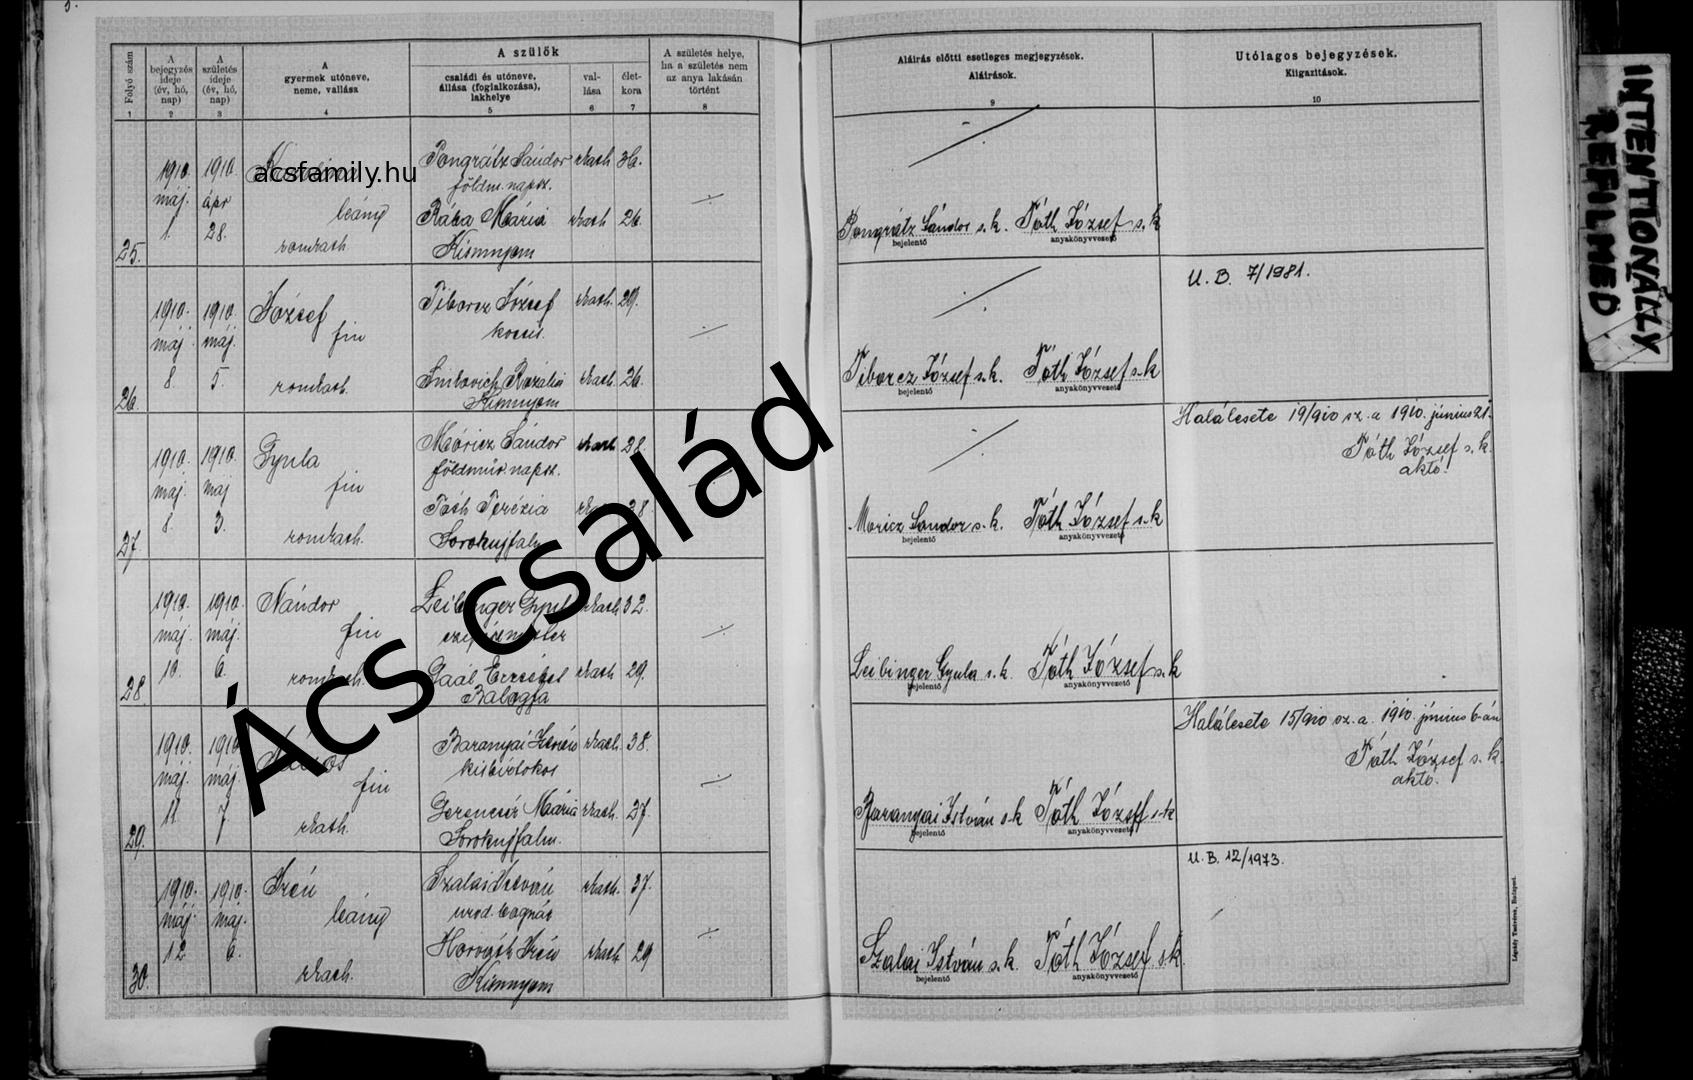 5.
Folyó szám
A bejegyzés ideje (év, hó, nap)
A születés ideje (év, hó, nap)
A gyermek utóneve, neme, vallása
A szülők
családi és utóneve, állása (foglalkozása), lakhelye
vallása
életkora
A születés helye, ha a születés nem az anya lakásán történt
Aláírás előtti esetleges megjegyzések.
Aláírások.
Utólagos bejegyzések.
Kiigazítások.
1 2 3 4 5 6 7 8 9 10
25.
1910. máj. 1.
1910. ápr. 28.
leány
rom kath.
Pongrátz Sándor rkath 36.
földm. napsz.
Rába Mária rkath 26.
Kisunyom
Pongrátz Sándor s. k. Tóth József s. k
bejelentő anyakönyvvezető
26.
1910. máj. 8.
1910. máj. 5.
József
fiu
rom kath.
Tiborcz József rkath. 29.
kocsis.
Rozália rkath. 26.
Kisunyom
Tiborcz József s. k. Tóth József s. k
bejelentő anyakönyvvezető
U. B. 7/1981.
27.
1910. máj. 8.
1910. maj 3.
Gyula
fiu
rom kath.
Móricz Sándor rkath 28.
földmüv. napsz.
Tóth Terézia 28
Sorokujfalu
Moricz Sandor s. k. Tóth József s. k
bejelentő anyakönyvvezető
Halálesete 19/910 sz. a 1910. június 21.
Tóth József s. k.
aktó.
28.
1910. máj. 10.
1910. máj. 6.
Nándor
fiu
rom kath.
Leibinger Gyula rkath 32.
Gaál Erzsébet rkath 29.
Balogfa
Leibinger Gyula s. k. Tóth József s. k
bejelentő anyakönyvvezető
29.
1910. máj. 11.
1910. máj. 7
fiu
rkath.
Baranyai István rkath. 38.
kisbirtokos
Gerencsér Mária rkath. 37.
Sorokujfalu.
Baranyai István s. k Tóth József s. k
bejelentő anyakönyvvezető
Halálesete 15/910 sz. a. 1910. június 6-án
Tóth József s. k.
akto.
30.
1910. máj. 12
1910. maj. 6.
Irén
leány
rkath.
Szalai István rkath. 37.
urad. bognár
Horváth Irén rkath 29
Kisunyom
Szalai István s. k. Tóth József s. k
bejelentő anyakönyvvezető
U. B. 12/1973.
acsfamily.hu
Ács család
INTENTIONALLY
REFILMED